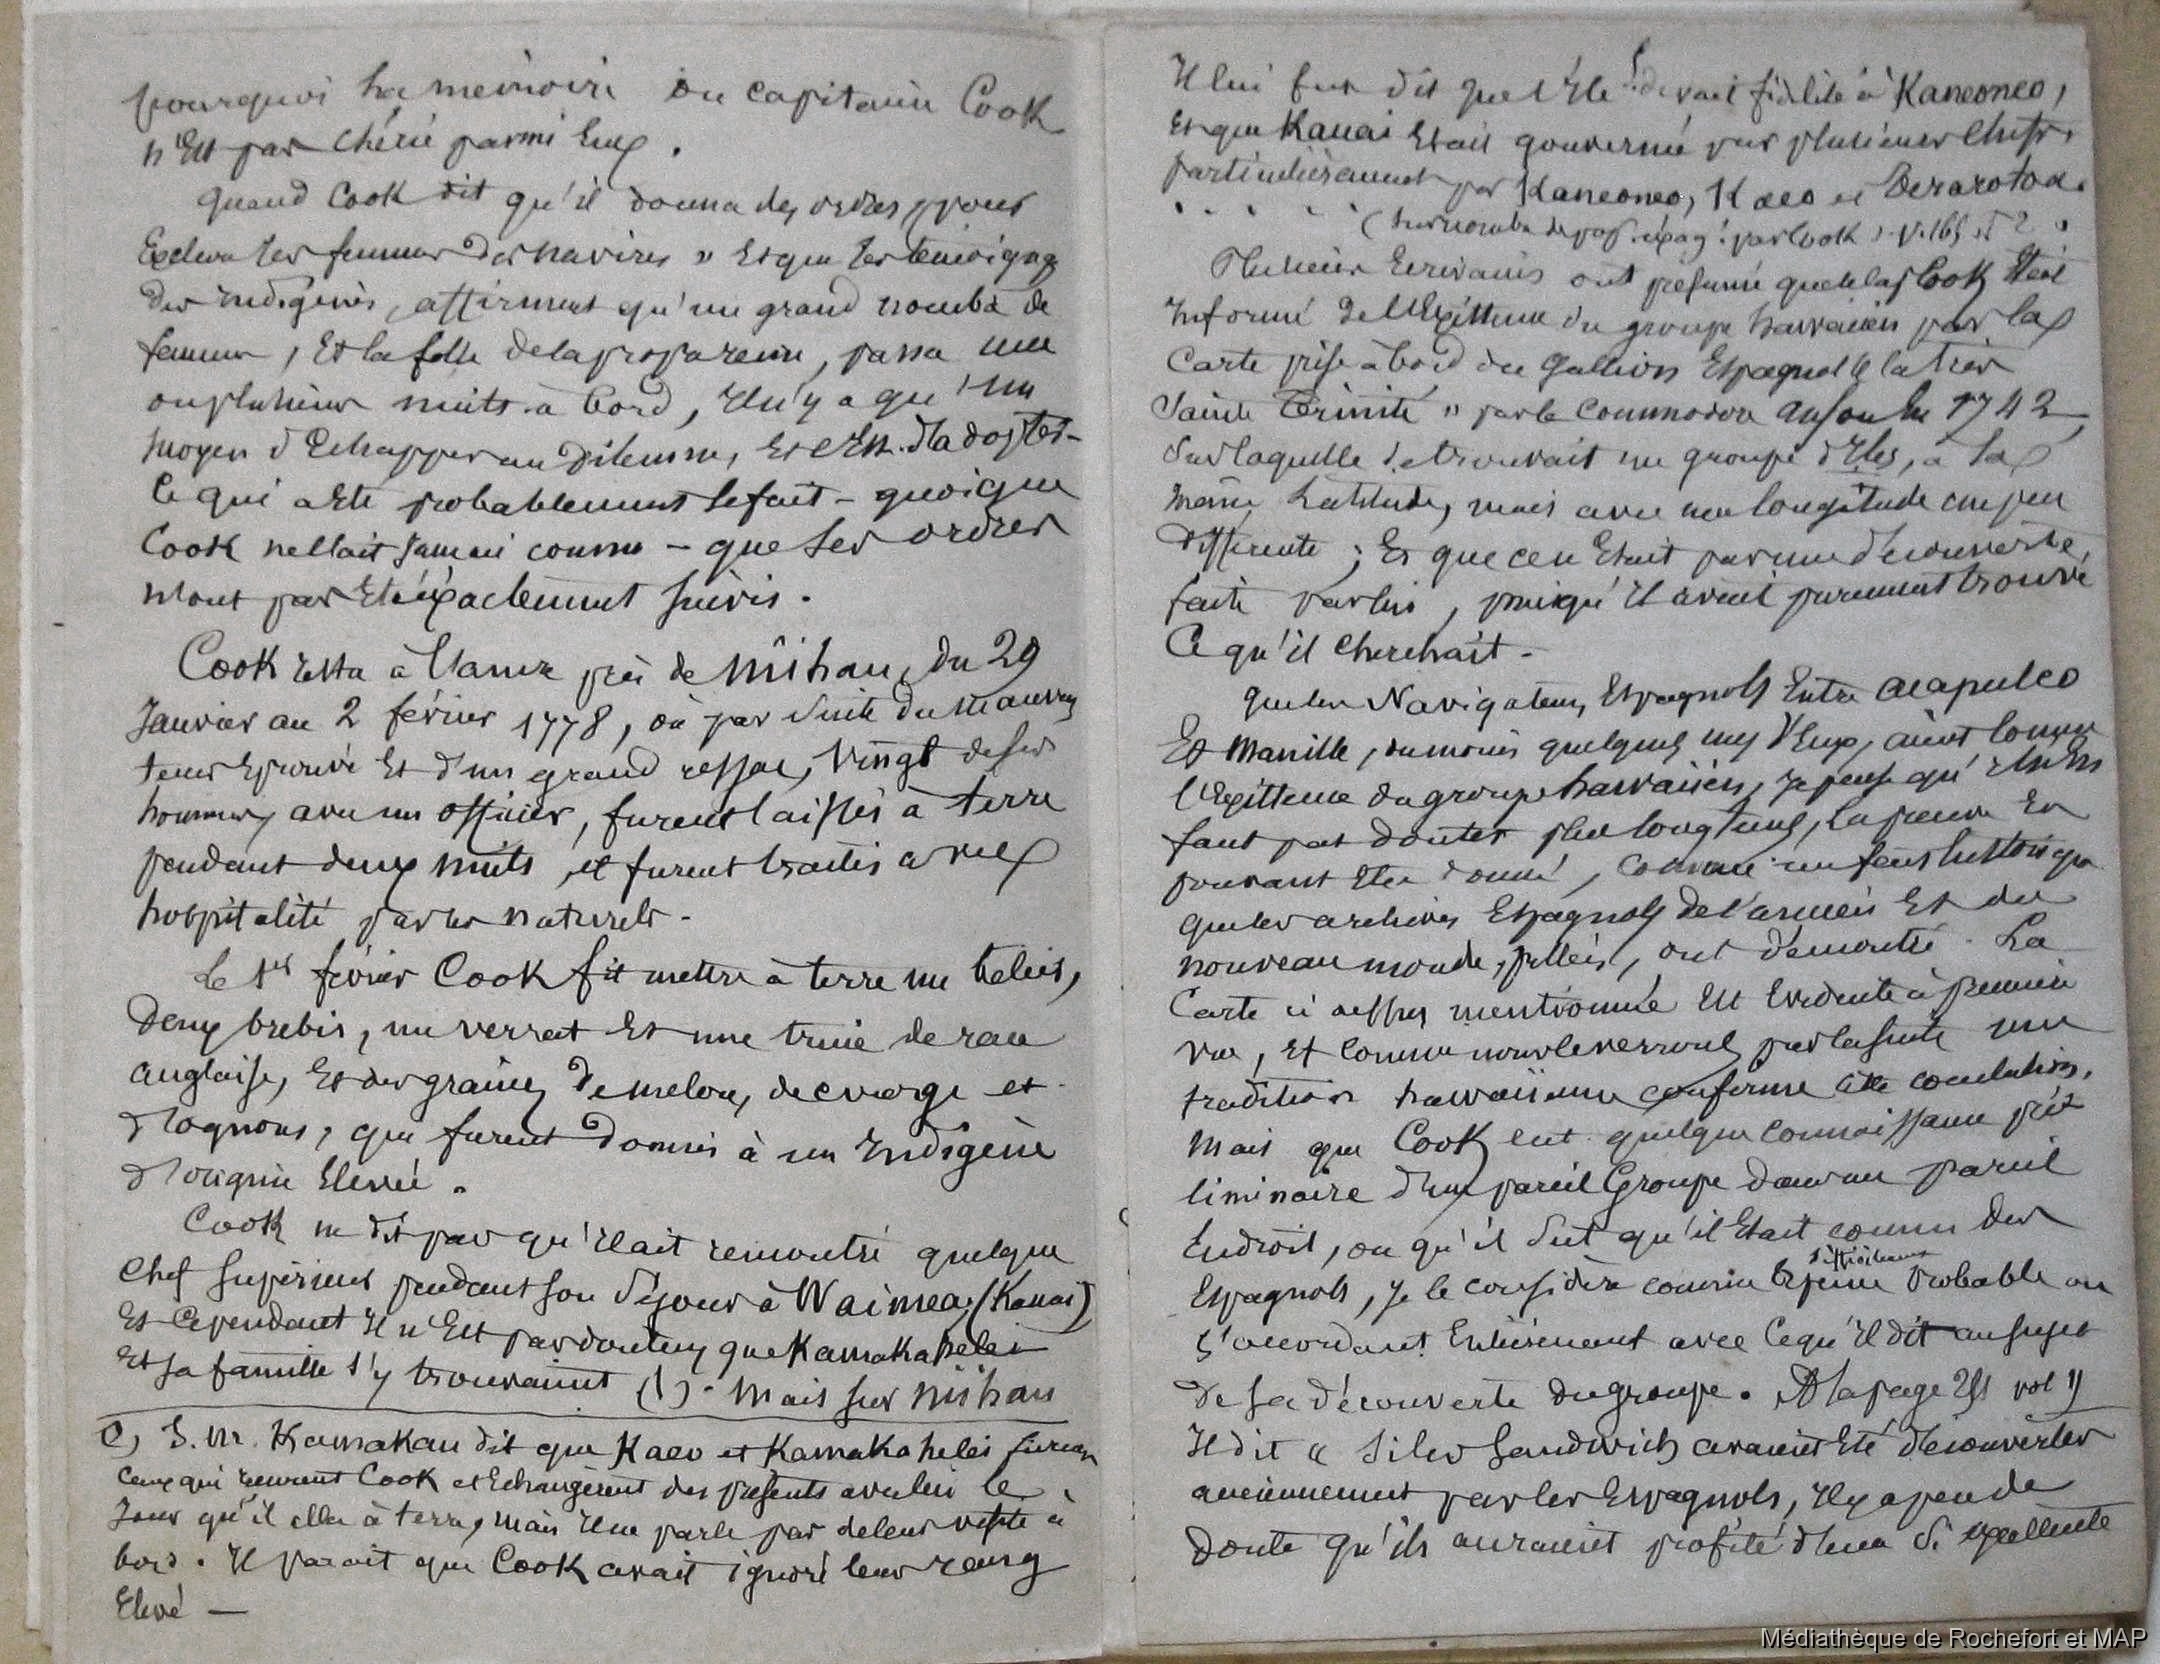 pourquoi la mémoire du capitaine Cook
n'Est pas chérie parmi Eux.
Quand Cook dit qu'il donna des ordres, pour
Exclure les femmes des navires » Et que les témoignages
des Indigènes, affirment qu'un grand nombre de
femmes, Et la fille de la propre reine, passa une
ou plusieurs nuits à bord, Il n'y a qu'un
moyen d'Echapper au Dilemme, Et c'Est d'adopter
Ce qui a Eté probablement le fait - quoique
Cook ne l'ait jamais connu - que ses ordres
n'ont pas Eté éxactement suivis.
Cook resta à l'ancre près de Niihau, du 29
Janvier au 2 février 1778, où par suite du mauvais
temps Eprouvé Et d'un grand ressac, vingt de ses
hommes avec un officier, furent laissés à terre
pendant deux nuits, et furent traités avec
hospitalité par les naturels -
Le 1er février Cook fit mettre à terre un belier,
Deux brebis, un verrat Et une truie de race
anglaise, Et des graines de melon, de courge et
d'ognons, qui furent donnés à un Indigène
d'origine Elevée.
Cook ne dit pas qu'il ait rencontré quelque
Chef supérieur pendant son séjour à Waimea, (Kauai)
Et Cependant Il n'Est pas douteux que Kamakahelei
Et sa famille s'y trouvaient (1). Mais sur Niihau
(1) S. M. Kamakau dit que Kaeo et Kamakahelei furent
Ceux qui reçurent Cook et Echangèrent des présents avec lui le
Jour qu'il alla à terre, mais Il ne parle pas de leur visite à
bord. Il parait que Cook avait ignoré leur rang
Elevé —
Il lui fut dit que l'Ile devait fidélité à Kaneoneo,
Et que Kauai Etait gouvernée par plusieurs Chefs,
particulièrement par Kaneoneo, Kaeo et Terarotoa.
. . . . . ( par Cook
Plusieurs Ecrivains ont présumé que Cook Etait
Informé de l'Existence du groupe hawaiien par la
Carte prise à bord du Gallion Espagnol « la très
Sainte Trinité » par le Commodore Anson En 1742,
Sur laquelle se trouvait un groupe d'Iles, à la
même Latitude, mais avec une longitude un peu
Différente ; Et que ce n'Etait pas une découverte,
faite par lui, puisqu'il avait purement trouvé
Ce qu'il cherchait -
Que les Navigateurs Espagnols Entre Acapulco
Et Manille, du moins quelques uns d'Eux, aient connu
l'Existence du groupe hawaiien, je pense qu'il n'En
faut pas douter plus longtemps, la preuve En
pouvant Etre donnée, comme un fait historique
que les archives Espagnols de l'ancien Et du
nouveau monde, ont démontré. La
Carte ci dessus mentionnée Est Evidente à première
vue, Et comme nous le verrons par la suite une
tradition hawaiienne conforme cette conclusion.
Mais que Cook eut quelque connaissance pré-
liminaire d'un pareil Groupe dans un pareil
Endroit, ou qu'il Sut qu'il Etait connu des
Espagnols, je le considère comme à peine probable ou
s'accordant Entièrement avec Ce qu'Il dit au sujet
de sa découverte du groupe. A la page 251 vol II
Il dit « Si les Sandwich avaient Eté découvertes
anciennement par les Espagnols, Il y a peu de
doute qu'ils auraient profité d'une si excellente
Médiathèque de Rochefort et MAP